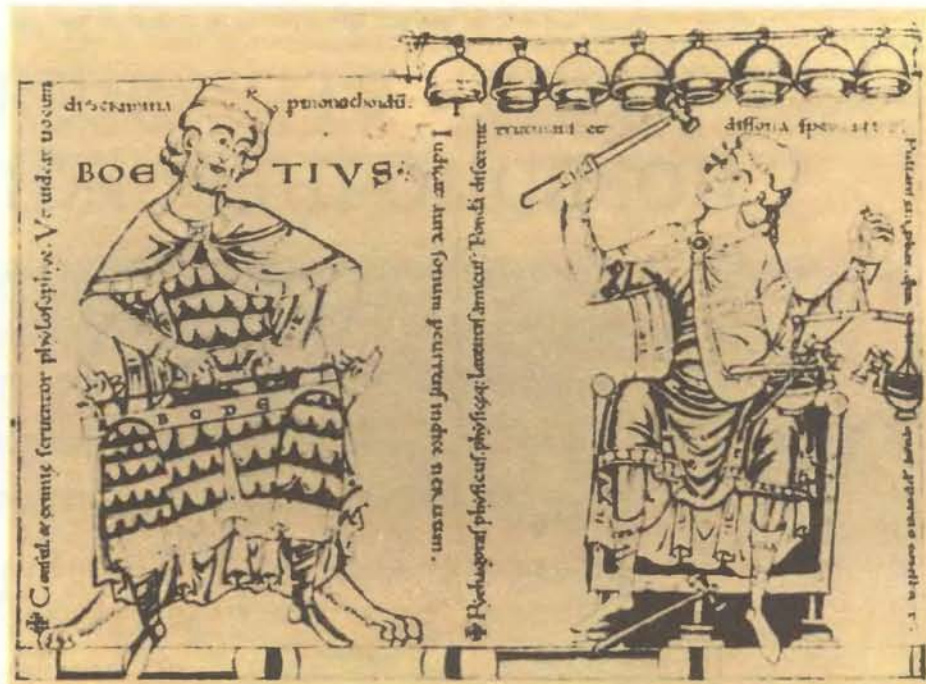 Consul & eximie scrutator phylosophiae. Vt uideat uocum
discrimina p monochordũ.
BOETIVS
Iudicat aure sonum pcurrens indice neruum.
B C D E
Pythagoras physicus physiceq; latentis amicus. Pondera discernit
trutinans et dissona spernit